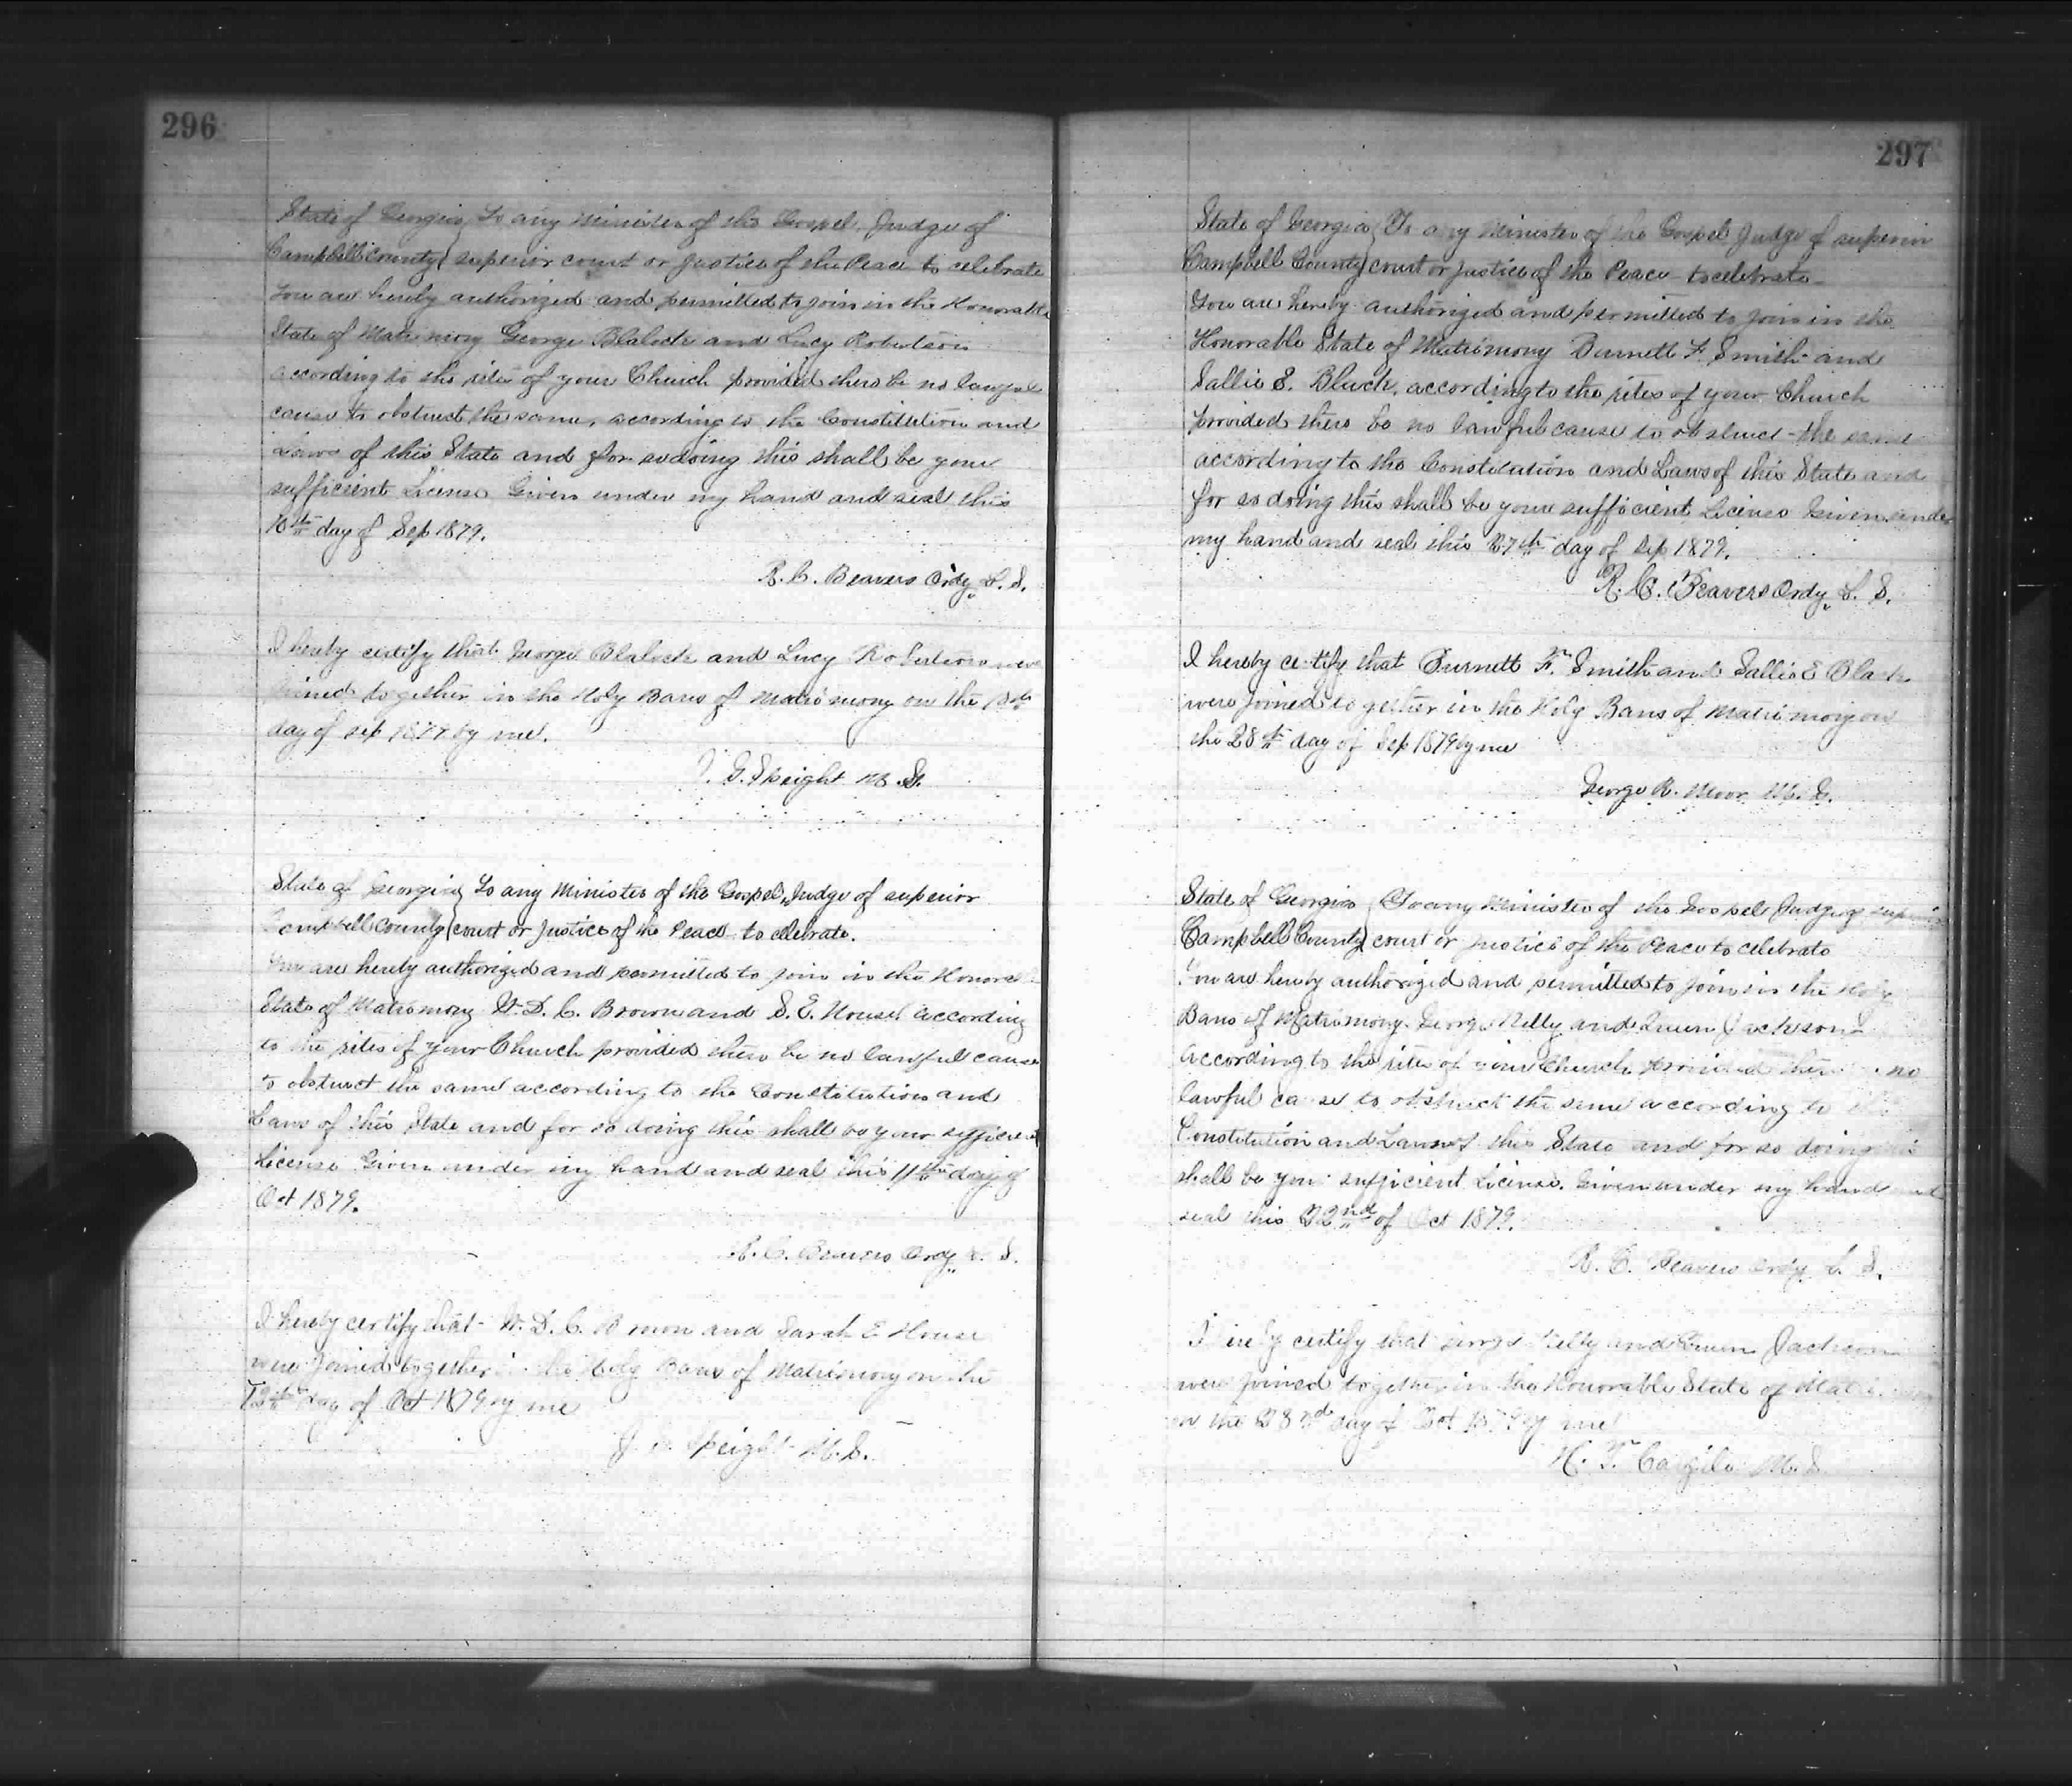 296
State of Georgia } To any Minister of the Gospel, Judge of
Campbell County } superior court or justice of the Peace to celebrate
You are hereby authorized and permitted to join in the Honorable
State of Matrimony George Blalock and Lucy Robertson
according to the rites of your Church provided there be no lawful
cause to obstruct the same, according to the Constitution and
Laws of this State and for so doing this shall be your
sufficient License Given under my hand and seal this
10th day of Sep 1879.
R. C. Beavers Ordy L. S.
I hereby certify that George Blalock and Lucy Robertson were
joined together in the Holy Bans of Matrimony on the
day of Sep 1879 by me.
G. Speight M. G.
State of Georgia } To any Minister of the Gospel, Judge of superior
Campbell County } court or Justice of the Peace to celebrate.
You are hereby authorized and permitted to join in the Honorable
State of Matrimony W. D. C. Brown and S. E. House according
to the rites of your Church provided there be no lawful cause
to obstruct the same according to the Constitution and
Laws of this State and for so doing this shall be your sufficient
License Given under my hand and seal this 11th day of
Oct 1879.
R. C. Beavers Ordy L. S.
I hereby certify that W. D. C. Brown and Sarah E House
were joined together in the Holy Bans of Matrimony on the
12th day of Oct 1879 by me
J. G. Speight M. G.
297
State of Georgia } To any Minister of the Gospel Judge of superior
Campbell County } court or justice of the Peace to celebrate
You are hereby authorized and permitted to join in the
Honorable State of Matrimony Burnett F. Smith and
Sallie E. Black, according to the rites of your Church
provided there be no lawful cause to obstruct the same
according to the Constitution and Laws of this State and
for so doing this shall be your sufficient License Given under
my hand and seal this 27th day of Sep 1879.
R. C. Beavers Ordy L. S.
I hereby certify that Burnett F. Smith and Sallie E Black
were joined together in the Holy Bans of Matrimony on
the 28th day of Sep 1879 by me
George R. Moor M. G.
State of Georgia } To any Minister of the Gospel Judge of superior
Campbell County } court or justice of the Peace to celebrate
You are hereby authorized and permitted to join in the Holy
Bans of Matrimony George Kelly and Queen Jackson
according to the rites of your Church provided there no
lawful cause to obstruct the same according to the
Constitution and Laws of this State and for so doing this
shall be your sufficient License. Given under my hand and
seal this 22nd of Oct 1879.
R. C. Beavers Ordy L. S.
I hereby certify that George Kelly and Queen Jackson
were joined together in the Honorable State of Matrimony
on the 23rd day of Oct 1879 by me